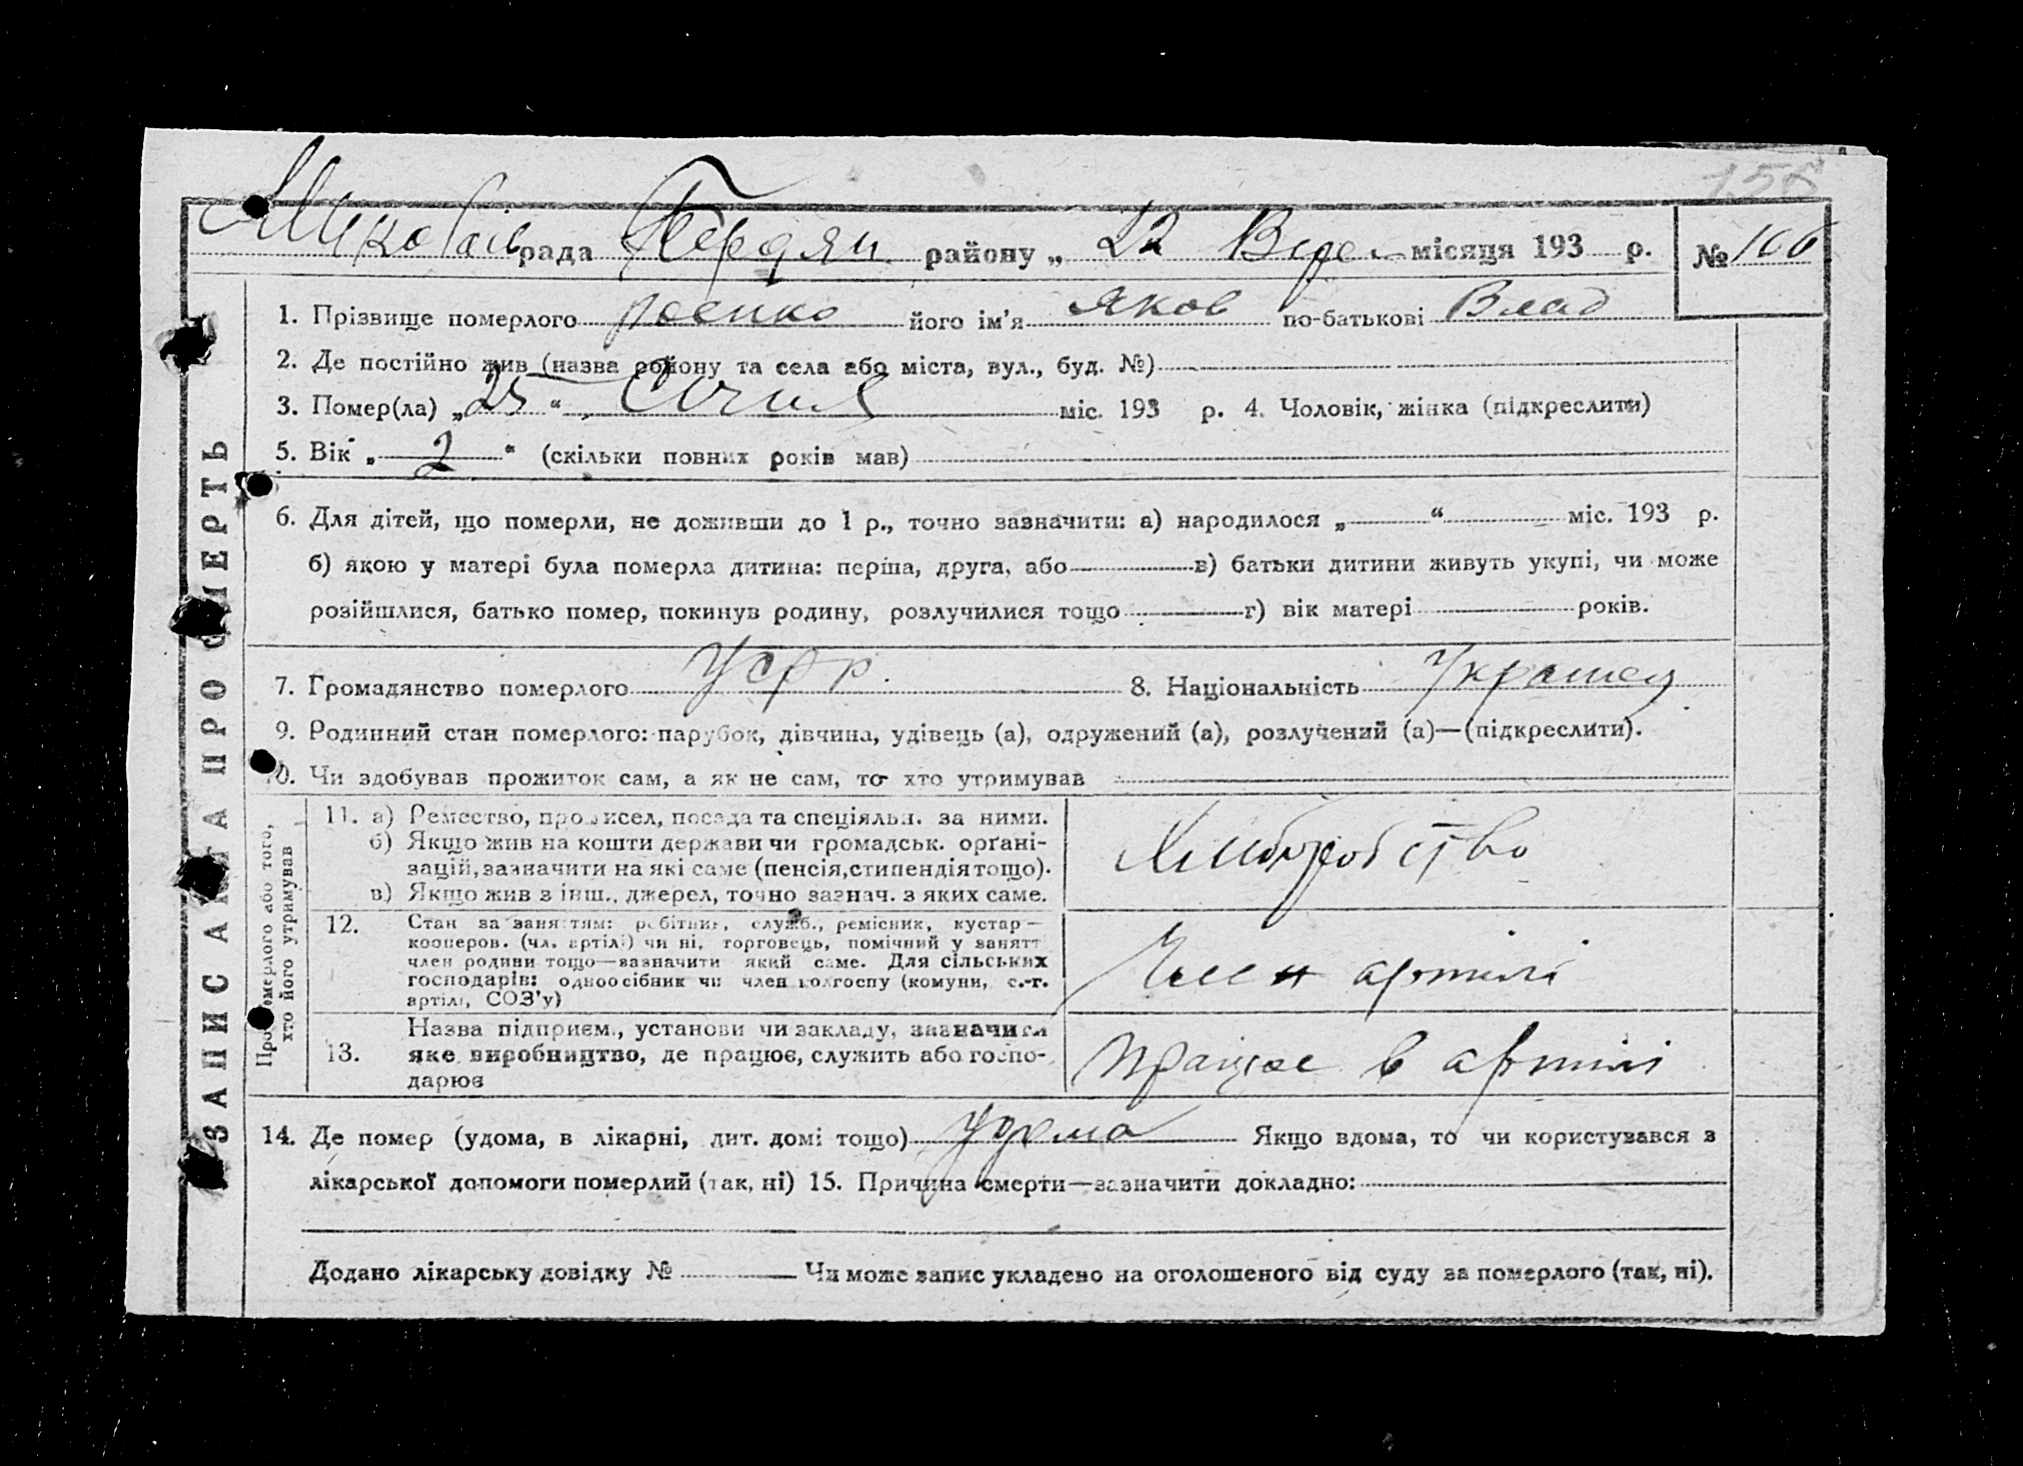 156
рада Бердян району „ 22 Вере місяця 193 р. № 106
1. Прізвище померлого його ім'я Яков по-батькові Влад
2. Де постійно жив (назва району та села або міста, вул., буд. №)
3. Помер(ла) „25“ Січня міс. 193 р. 4. Чоловік, жінка (підкреслити)
5. Вік „ 2 “ (скільки повних років мав)
6. Для дітей, що померли, не доживши до 1 р., точно зазначити: а) народилося „ “ міс. 193 р.
б) якою у матері була померла дитина: перша, друга, або в) батьки дитини живуть укупі, чи може
розійшлися, батько помер, покинув родину, розлучилися тощо г) вік матері років.
7. Громадянство померлого УСРР. 8. Національність Украінец
9. Родинний стан померлого: парубок, дівчина, удівець (а), одружений (а), розлучений (а)—(підкреслити).
10. Чи здобував прожиток сам, а як не сам, то хто утримував
Про померлого або того,
хто його утримував
11. а) Ремество, промисел, посада та спеціяльн. за ними.
б) Якщо жив на кошти держави чи громадськ. орґані-
зацій, зазначити на які саме (пенсія, стипендія тощо).
в) Якщо жив з інш., джерел, точно зазнач. з яких саме.
Хліборобство
12. Стан за заняттям: робітник, служб., ремісник, кустар—
кооперов. (чл. артілі) чи ні, торговець, помічний у занятт
член родини тощо—зазначити який саме. Для сільських
господарів: одноосібник чи член колгоспу (комуни, с.-г.
артілі, СОЗ'у)
Член артилі
13. Назва підприєм., установи чи закладу, зазначити
яке виробництво, де працює, служить або госпо-
дарює
працює в артилі
14. Де помер (удома, в лікарні, дит. домі тощо) удома Якщо вдома, то чи користувався з
лікарської допомоги померлий (так, ні) 15. Причина смерти—зазначити докладно:
Додано лікарську довідку № Чи може запис укладено на оголошеного від суду за померлого (так, ні).
ЗАПИСКА ПРО СМЕРТЬ